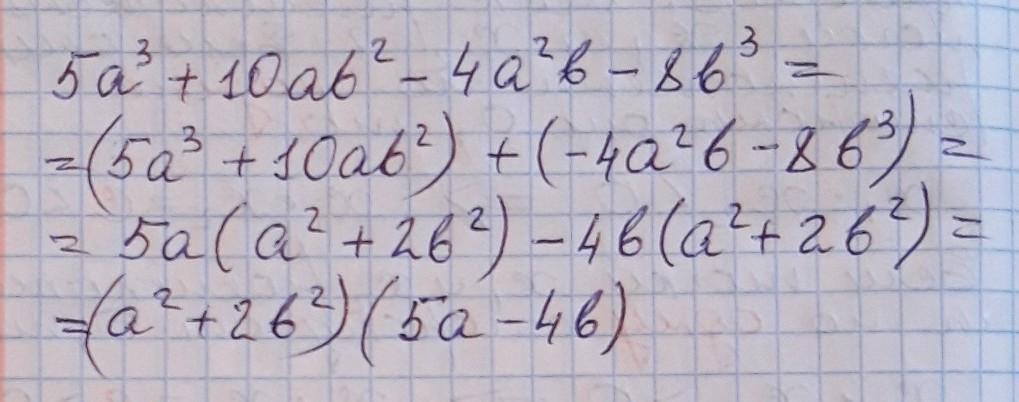 5a³ + 10ab² - 4a²b - 8b³ =
= (5a³ + 10ab²) + (-4a²b - 8b³) =
= 5a(a² + 2b²) - 4b(a² + 2b²) =
= (a² + 2b²)(5a - 4b)